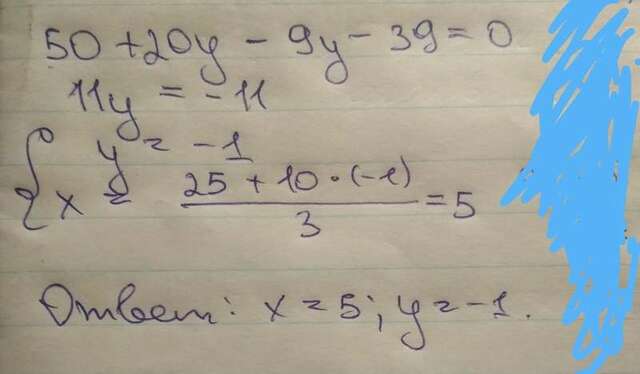 50 + 20y - 9y - 39 = 0
11y = -11
{ y = -1
x = (25 + 10 · (-1))/3 = 5
Ответ: x = 5; y = -1.